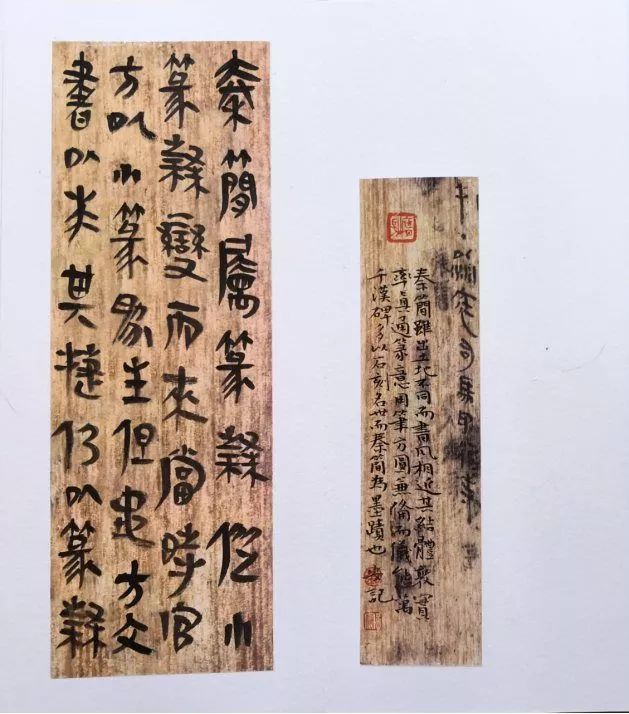 秦簡屬篆隸從小
篆隸變而來當時官
方以小篆為主但方文
書以求其捷仍以篆隸
秦簡雖出土地不同而書風相近其結體敦實
率真通篆意用筆方圓兼備而儀態萬
千漢碑多以石刻名世而秦簡為墨蹟也 記